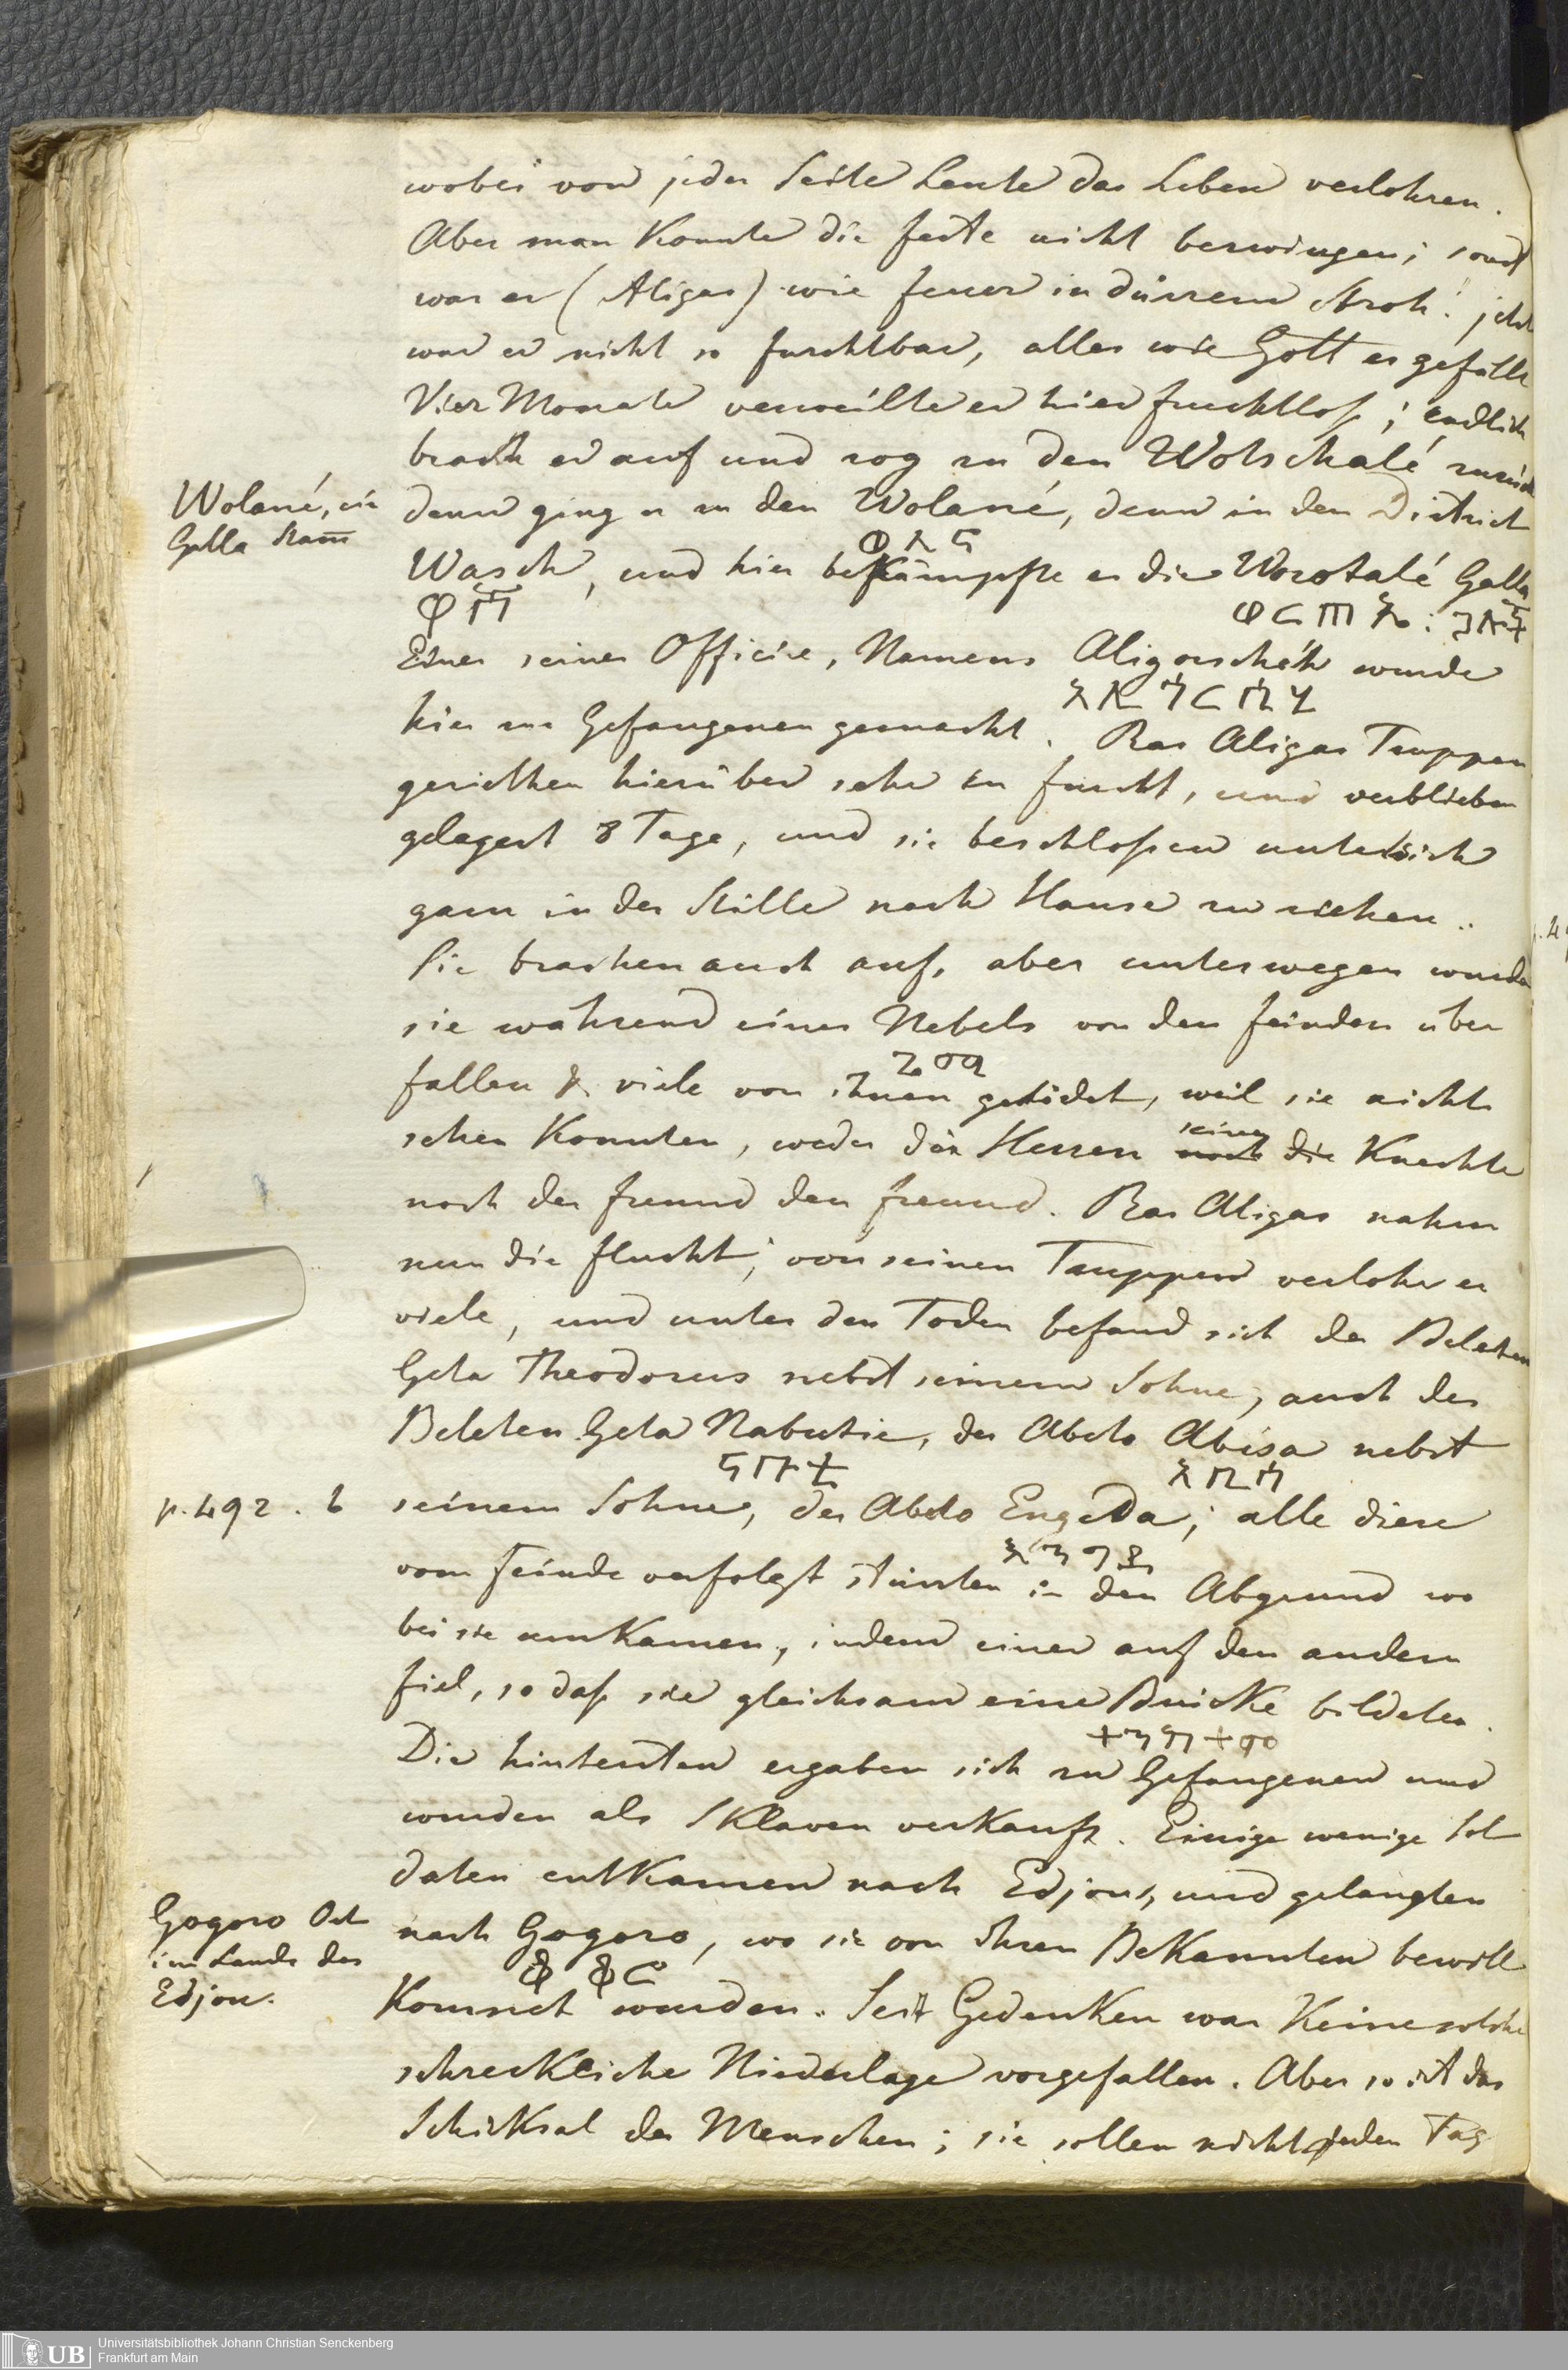 wobei von jeder Seite Leute das Leben verlohren.
Aber man konnte die feste nicht bezwingen; sonst
war er (Aligas) wie feuer in dürrem Stroh: jetzt
war er nicht so furchtbar, alles wie Gott es gefällt
Vier Monate verweilte er hier fruchtloß; endlich
brach er auf und zog zu den Wotschalé zurück
Wolané, ein
Galla Stam̄
dann ging er zu den Wolané, dann in den District
ወለኔ
Wasch, und hier bekämpfte er die Worotalé Galla
ዋሽ
ወረጠሉ: ጋሎች
Einer seiner Officire, Namens Aligorschéh wurde
hier zu Gefangenen gemacht. Ras Aligas Truppen
geriethen hierüber sehr in furcht, und verblieben
gelagert 8 Tage, und sie beschloßen unter sich
ganz in der Stille nach Hause zu ziehen.
Sie brachen auch auf, aber unterwegen wurden
sie während eines Nebels von den feinden über
ጉም
fallen & viele von ihnen getödet, weil sie nicht
sehen konnten, weder der Herren seine noch die Knechte
noch der freund den freund. Ras Aligas nahm
nun die flucht; von seinen Truppen verlohr er
viele, und unter den Toden befand sich der Beleten
Geta Theodorus nebst seinem Sohne, auch der
Beleten Geta Nabutie, der Abeto Abisa nebst
ናቡቴ
አቢሳ
p. 492. b
seinem Sohne, der Abeto Engeda; alle diese
እንግዳ
vom feinde verfolgt stürzten in den Abgrund wo
bei sie umkamen, indem einer auf den andern
fiel, so daß sie gleichsam eine Brücke bildeten.
Die hintersten ergaben sich zu Gefangenen und
wurden als Sklaven verkauft. Einige wenige Sol
daten entkamen nach Edjou, und gelangten
Gogoro Ort
im Lande der
Edjou.
nach Gogoro, wo sie von ihren Bekannten bewill
ጎጎሮ
kommet wurden. Seit Gedenken war keine solche
schreckliche Niederlage vorgefallen. Aber so ist das
Schicksal der Menschen; sie sollen nicht jeden Tag
UB
Universitätsbibliothek Johann Christian Senckenberg
Frankfurt am Main